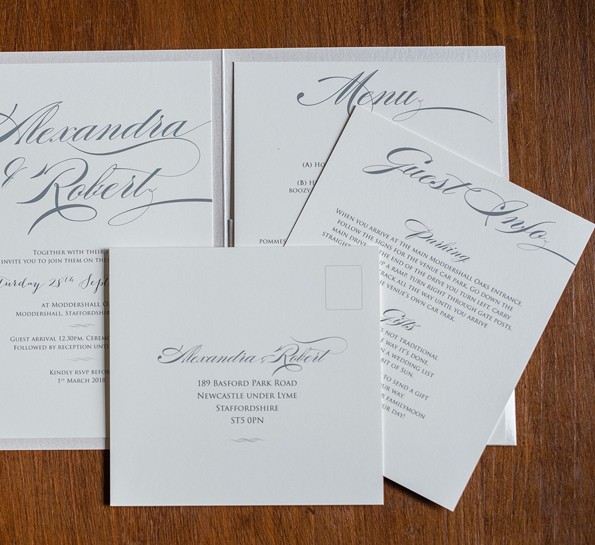 Alexandra
& Robert
Together with the
invite you to join them on the
28th Sept
at Moddershall
Moddershall, Staffordshire
Guest arrival 12.30pm, Cerem
Followed by reception until
Kindly RSVP before
1st March 2018
Menu
(A)
(B)
boozy
pommes
Guest Info
Parking
When you arrive at the main Moddershall Oaks entrance,
follow the signs for the venue car park. Go down the
main drive
the end of the drive you turn left, carry
straight
up a ramp, turn right through gate posts,
track all the way until you arrive
venue's own car park.
Gifts
not traditional
way it's done.
a wedding list
bit of sun.
to send a gift
your way.
our familymoon
day!
Alexandra & Robert
189 Basford Park Road
Newcastle under Lyme
Staffordshire
ST5 0PN